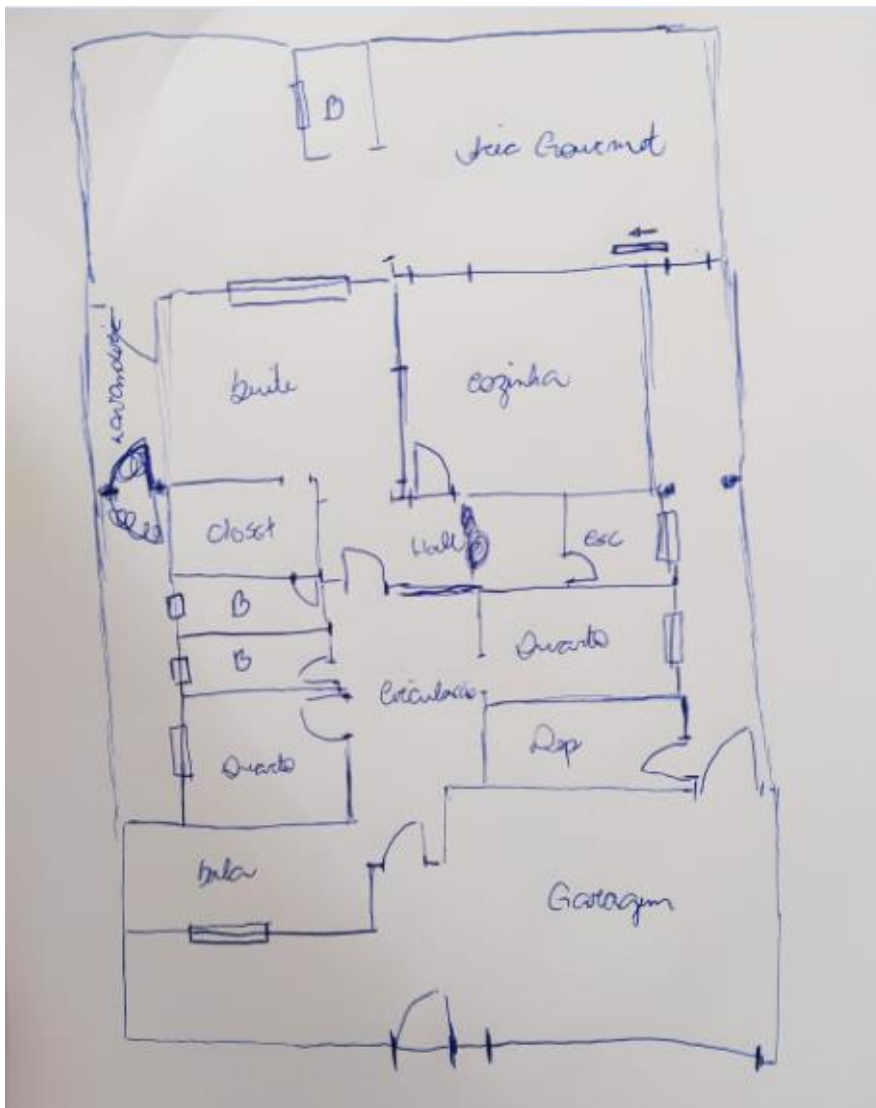 B
Área Gourmet
Lavanderia
Suíte
cozinha
closet
Hall
esc
B
B
Quarto
Circulação
Dep
Quarto
Sala
Garagem